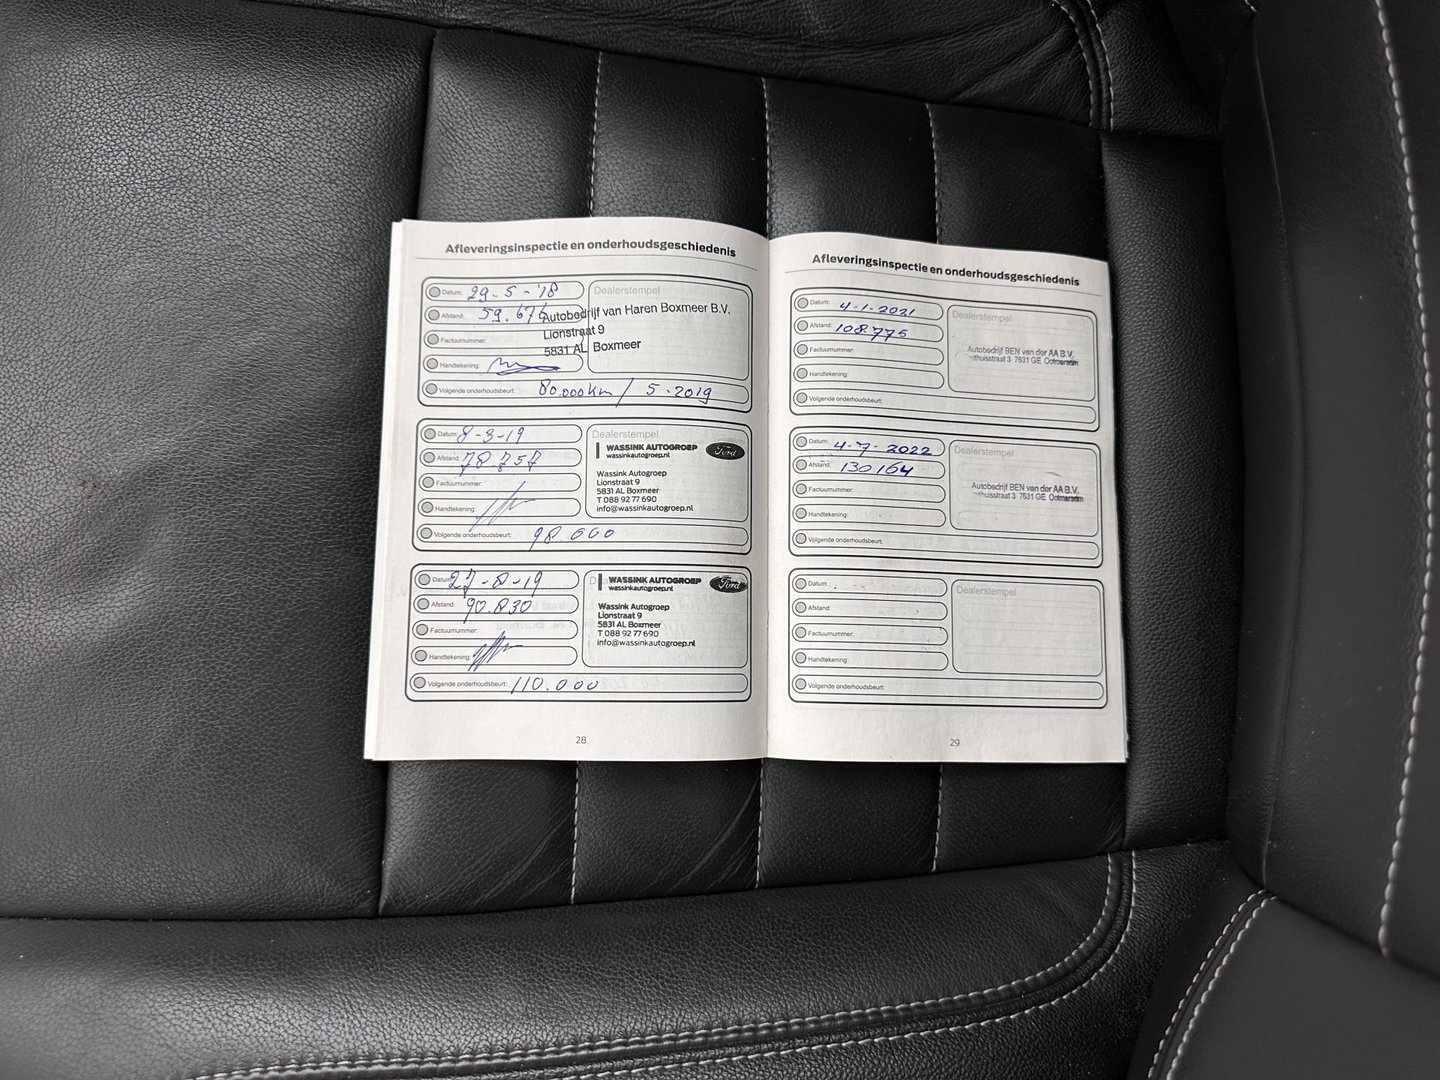 Afleveringsinspectie en onderhoudsgeschiedenis
Datum: 29-5-'18
Afstand: 59.676
Factuurnummer:
Handtekening:
Volgende onderhoudsbeurt: 80.000km / 5-2019
Dealerstempel
Autobedrijf van Haren Boxmeer B.V.
Lionstraat 9
5831 AL Boxmeer
Datum: 8-3-19
Afstand: 78.757
Factuurnummer:
Handtekening:
Volgende onderhoudsbeurt: 98.000
Dealerstempel
WASSINK AUTOGROEP
wassinkautogroep.nl
Ford
Wassink Autogroep
Lionstraat 9
5831 AL Boxmeer
T 088 92 77 690
info@wassinkautogroep.nl
Datum: 27-8-19
Afstand: 90.830
Factuurnummer:
Handtekening:
Volgende onderhoudsbeurt: 110.000
WASSINK AUTOGROEP
wassinkautogroep.nl
Ford
Wassink Autogroep
Lionstraat 9
5831 AL Boxmeer
T 088 92 77 690
info@wassinkautogroep.nl
28
Afleveringsinspectie en onderhoudsgeschiedenis
Datum: 4-1-2021
Afstand: 108.775
Factuurnummer:
Handtekening:
Volgende onderhoudsbeurt:
Dealerstempel
Autobedrijf BEN van der AA B.V.
7631 GE Ootmarsum
Datum: 4-7-2022
Afstand: 130164
Factuurnummer:
Handtekening:
Volgende onderhoudsbeurt:
Dealerstempel
Autobedrijf BEN van der AA B.V.
7631 GE Ootmarsum
Datum:
Afstand:
Factuurnummer:
Handtekening:
Volgende onderhoudsbeurt:
Dealerstempel
29